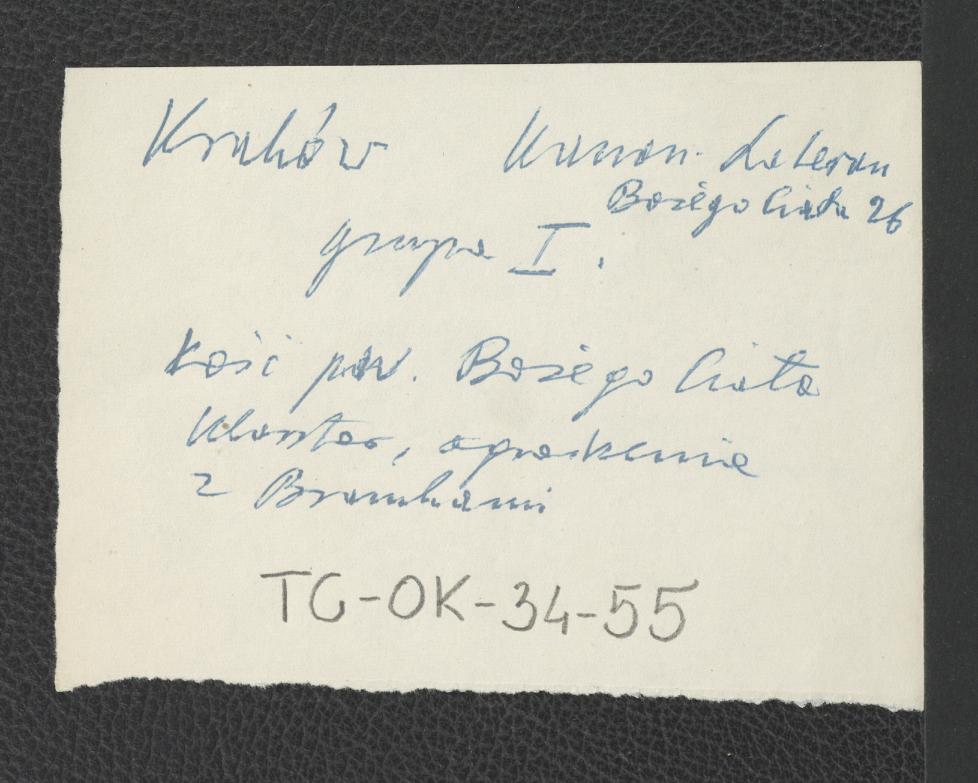 Kraków Kanon. Lateran
Bożego Ciała 26
grupa I.
Kość par. Bożego Ciała
Klasztor, ogrodzenie
z Bramkami
TG-OK-34-55